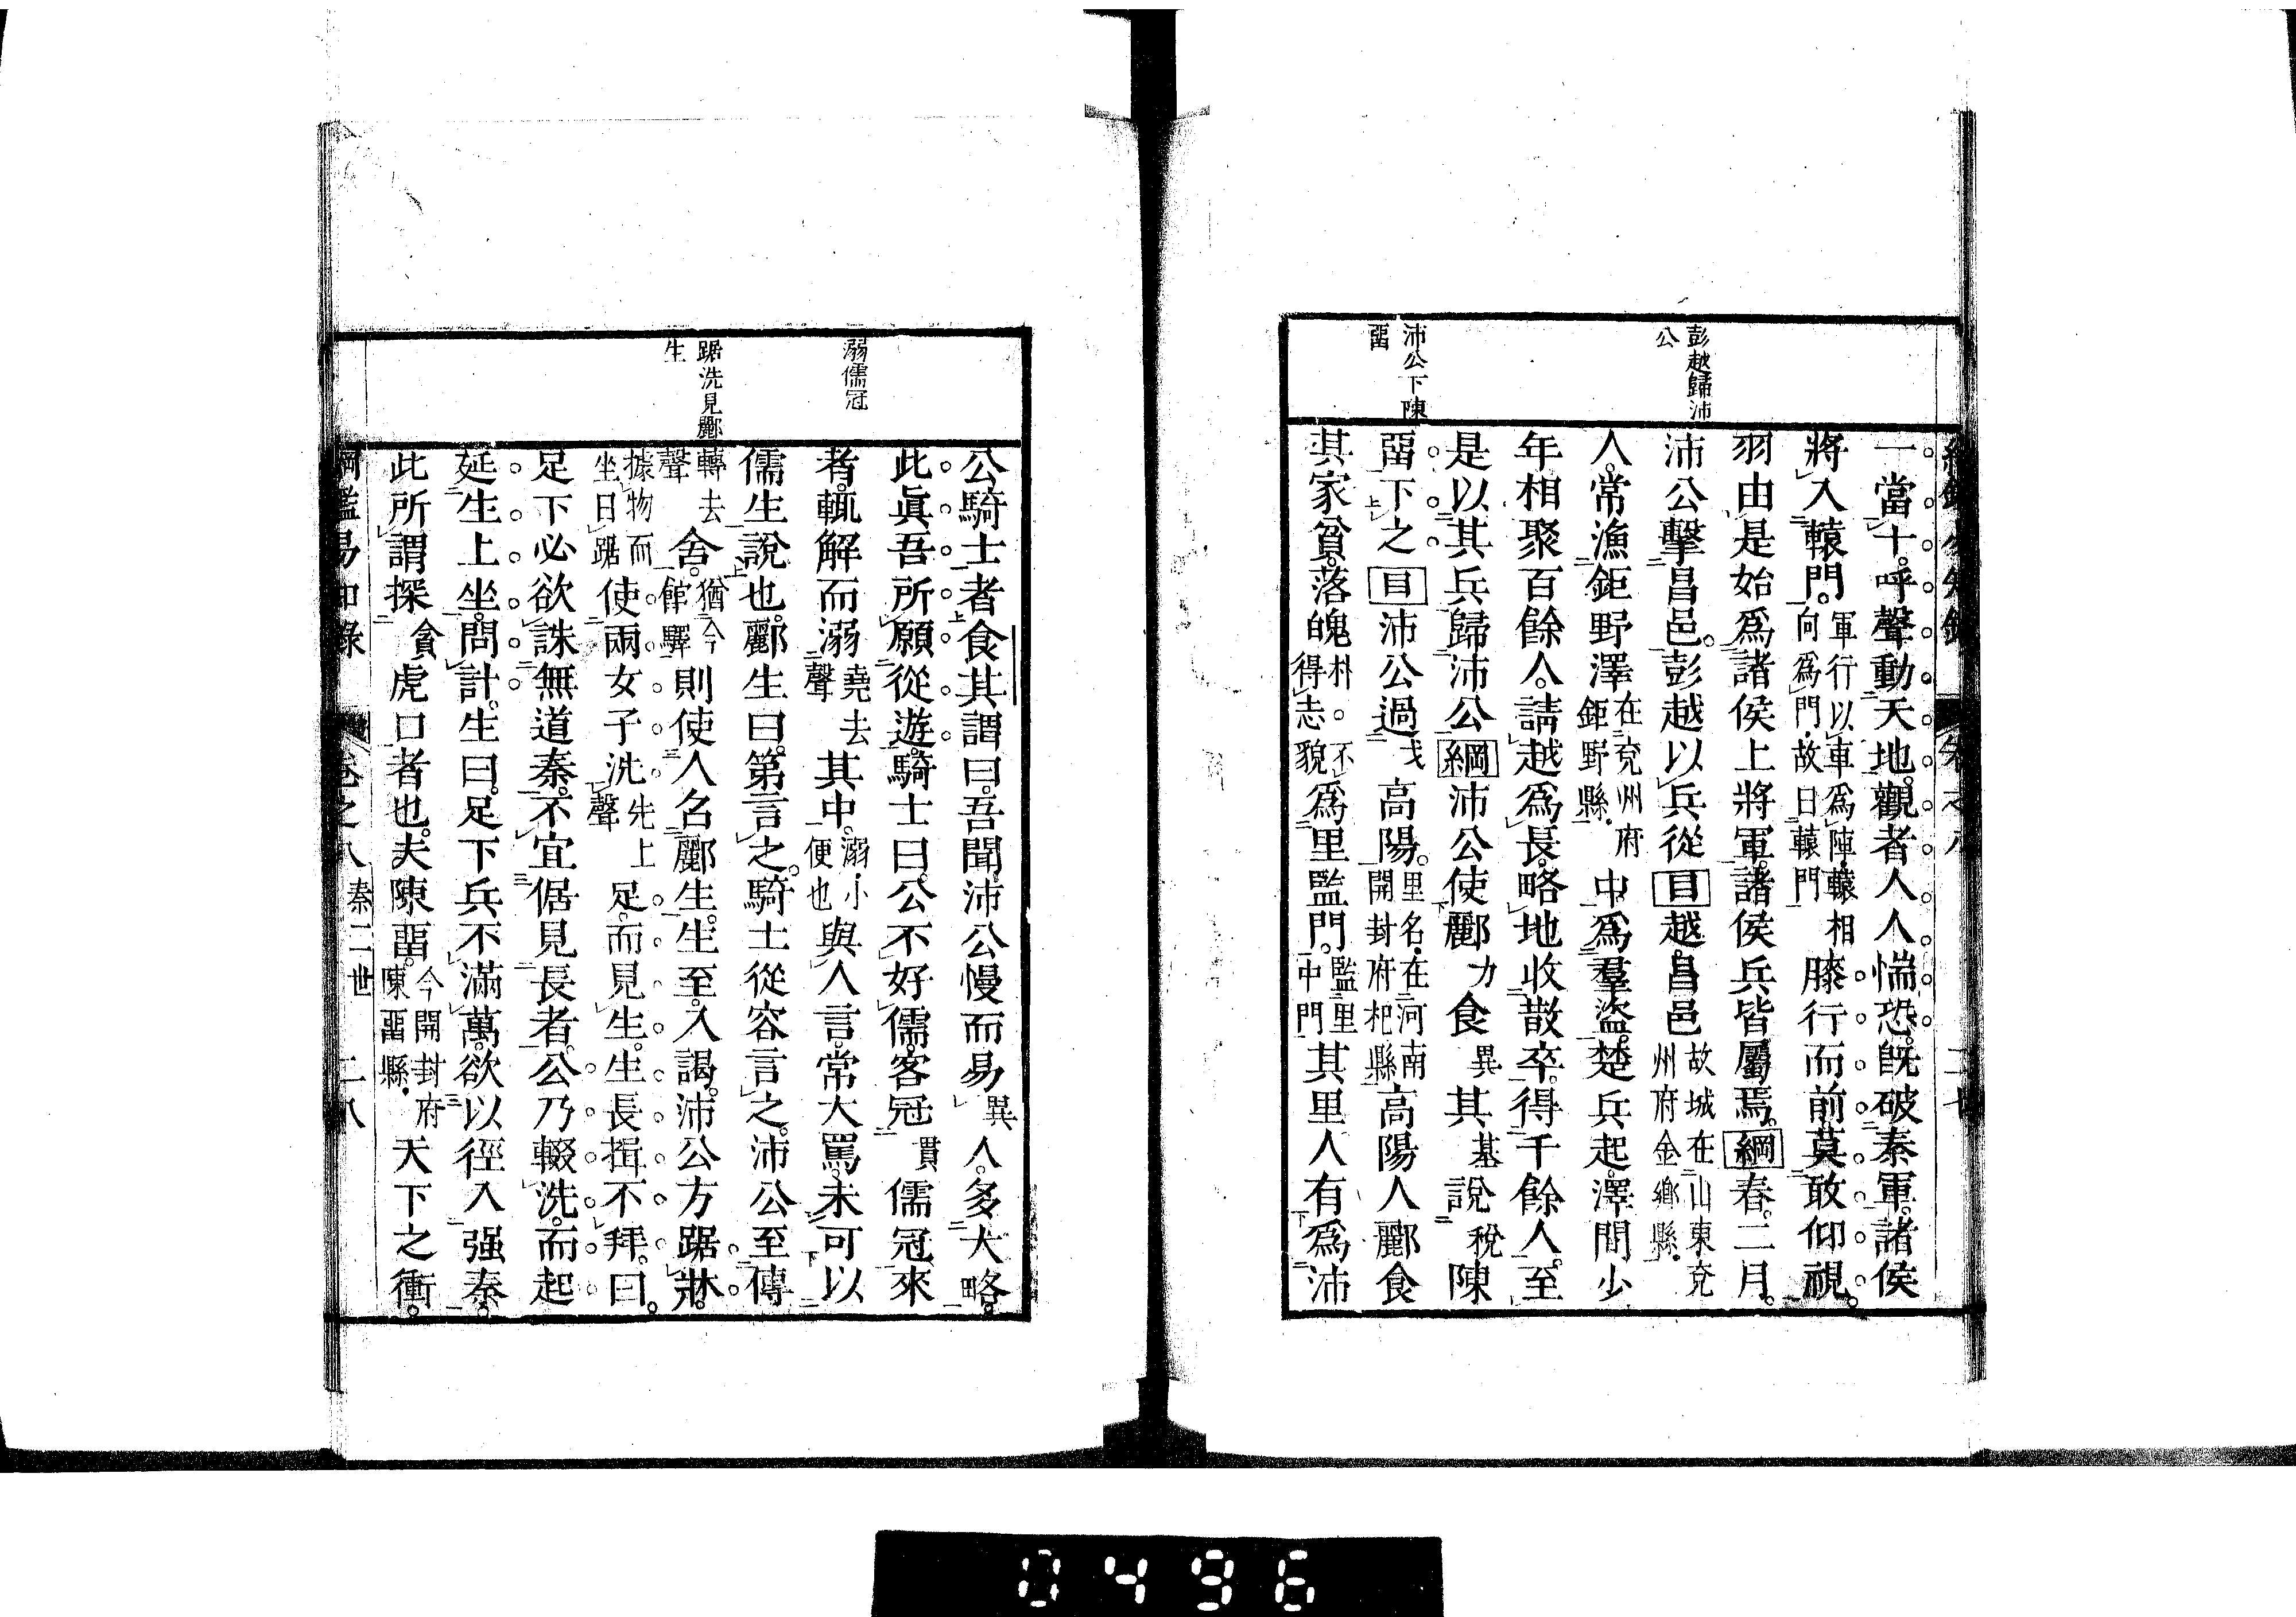 彭越歸沛
公
沛公下陳
畱
一當十。呼聲動天地。觀者人人惴恐。旣破秦軍。諸侯
將入轅門。軍行以車爲陣。轅相向爲門。故曰轅門膝行而前。莫敢仰視。
羽由是始爲諸侯上將軍。諸侯兵皆屬焉。綱春。二月。
沛公擊昌邑。彭越以兵從目越昌邑故城在山東兗州府金鄉縣。
人。常漁鉅野澤在兗州府鉅野縣。中。爲羣盜。楚兵起。澤間少
年相聚百餘人。請越爲長。略地收散卒。得千餘人。至
是以其兵歸沛公綱沛公使酈力食異其基說稅陳
畱下之目沛公過戈高陽。里名。在河南開封府杞縣高陽人酈食
其家貧。落魄朴。不得志貌爲里監門。監里中門其里人有爲沛
溺儒冠
踞洗見酈
生
公騎士者食其謂曰。吾聞沛公慢而易異人。多大略。
此眞吾所願從遊。騎士曰。公不好儒。客冠貫儒冠來
者。輒解而溺堯去聲其中。溺。小便也與人言。常大罵。未可以
儒生說也。酈生曰。第言之。騎士從容言之。沛公至傳
轉去聲舍。猶今館驛則使人召酈生。生至。入謁。沛公方踞牀。
據物而坐曰踞使兩女子洗先上聲足。而見生。生長揖不拜。曰。
足下必欲誅無道秦。不宜倨見長者。公乃輟洗。而起
延生上坐。問計。生曰。足下兵不滿萬。欲以徑入强秦。
此所謂探貪虎口者也。夫陳畱。今開封府陳畱縣。天下之衝。
綱鑑易知錄 卷之八 秦二世 二八
0496